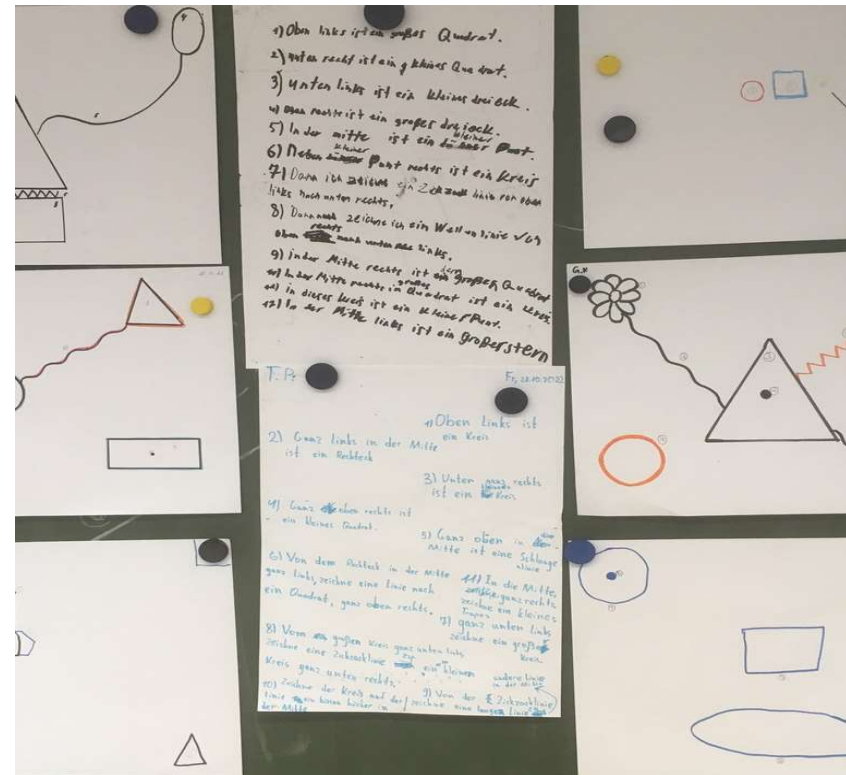 1) Oben links ist ein großes Quadrat.
2) unten recht ist ein g kleines Quadrat.
3) unten links ist ein kleines dreieck.
4) Oben rechts ist ein großes dreieck.
5) In der mitte ist ein kleiner Punt.
6) Neben kleiner Punt rechts ist ein Kreis
7) Dann ich zeichne ein Zickzack linie von oben
links nach unten rechts.
8) Dannach zeichne ich ein Wellen linie von
oben rechts nach unten links.
9) in der Mitte rechts ist ein großen Quadrat
10) In der Mitte rechts in großes Quadrat ist ein kreis.
11) in dieses kreis ist ein kleiner Punt.
12) In der Mitte links ist ein großer stern
T. Pr
Fr, 28.10.2022
1) Oben Links ist
ein Kreis
2) Ganz links in der Mitte
ist ein Rechteck
3) Unter ganz rechts
ist ein Kreis
4) Ganz oben rechts ist
ein kleines Quadrat.
5) Ganz oben in der
Mitte ist eine Schlange
linie
6) Von dem Rechteck in der Mitte
ganz links, zeichne eine linie nach
ein Quadrat, ganz oben rechts.
11) In die Mitte,
ganz rechts
zeichne ein kleines
Trapez
7) ganz unten links
zeichne ein großes
Kreis.
8) Vom großen Kreis ganz unten links
zeichne eine Zickzacklinie zu ein kleinen
Kreis ganz unten rechts.
andere Linie
in der Mitte
9) Von der Zickzacklinie
zeichne eine langen Linie
10) zeichne der Kreis auf der
linie ein bisschen höcher in
der Mitte
G.K